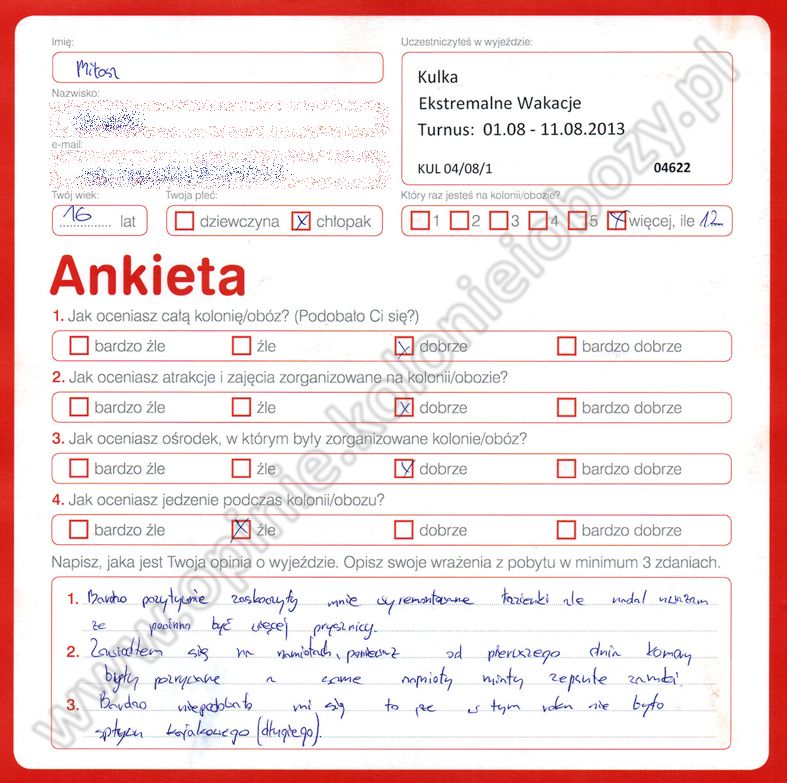 Imię:
Miłosz
Uczestniczyłeś w wyjeździe:
Kulka
Ekstremalne Wakacje
Turnus: 01.08 - 11.08.2013
KUL 04/08/1 04622
Nazwisko:
e-mail:
Twój wiek:
16 lat
Twoja płeć:
dziewczyna x chłopak
Który raz jesteś na kolonii/obozie?
1 2 3 4 5 x więcej, ile 12
Ankieta
1. Jak oceniasz całą kolonię/obóz? (Podobało Ci się?)
bardzo źle źle x dobrze bardzo dobrze
2. Jak oceniasz atrakcje i zajęcia zorganizowane na kolonii/obozie?
bardzo źle źle x dobrze bardzo dobrze
3. Jak oceniasz ośrodek, w którym były zorganizowane kolonie/obóz?
bardzo źle źle x dobrze bardzo dobrze
4. Jak oceniasz jedzenie podczas kolonii/obozu?
bardzo źle x źle dobrze bardzo dobrze
Napisz, jaka jest Twoja opinia o wyjeździe. Opisz swoje wrażenia z pobytu w minimum 3 zdaniach.
1. Bardzo pozytywnie zaskoczyły mnie wyremontowane łazienki ale nadal uważam
że powinno być więcej prysznicy.
2. Zawiodłem się na namiotach, ponieważ od pierwszego dnia komory
były pozrywane a same namioty miały zepsute zamki.
3. Bardzo niepodobało mi się to że w tym roku nie było
spływu kajakowego (długiego).
www.opinie.kolonieiobozy.pl